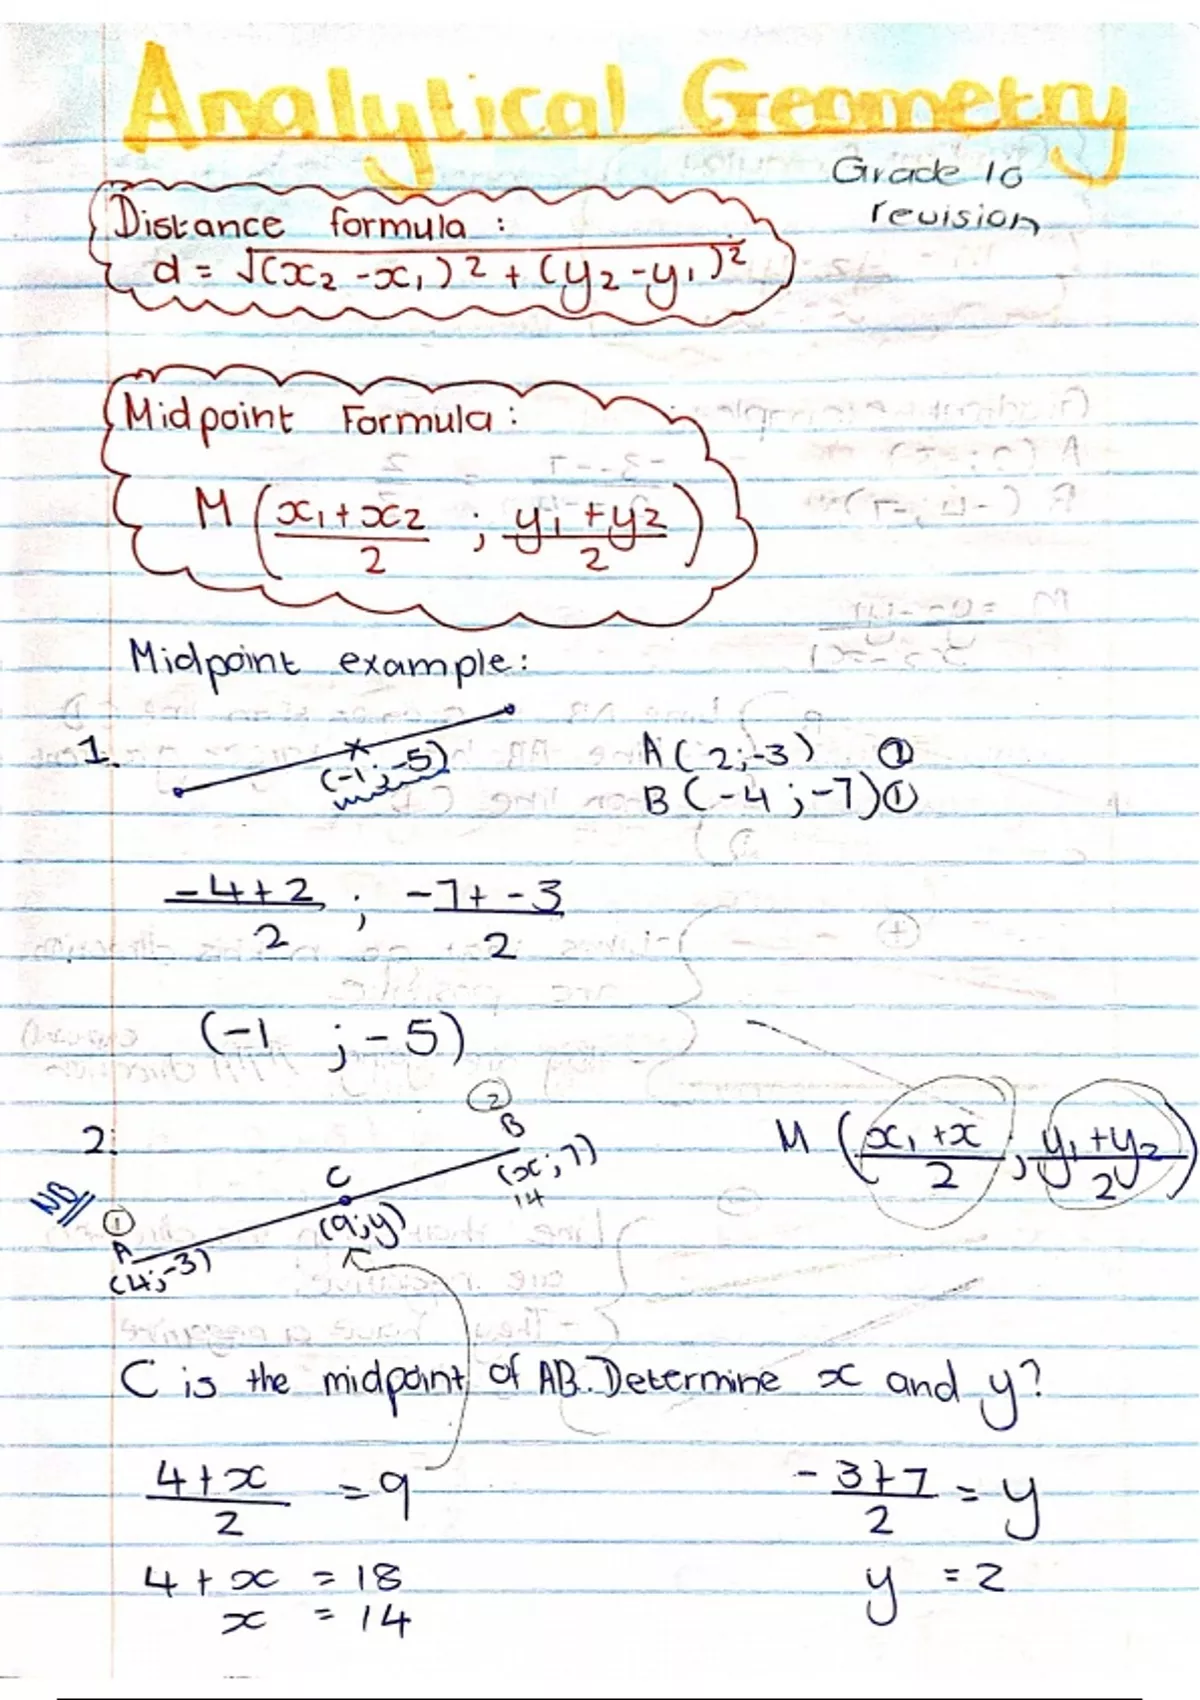 Analytical Geometry
Grade 10
revision
Distance formula :
d = √(x₂ - x₁)² + (y₂ - y₁)²
Midpoint Formula :
M ( x₁ + x₂ / 2 ; y₁ + y₂ / 2 )
Midpoint example :
1.
(-1 ; -5)
A ( 2 ; -3 ) ②
B ( -4 ; -7 ) ①
-4 + 2 / 2 ; -7 + -3 / 2
(-1 ; -5)
2.
NB
① A (4 ; -3)
C (9 ; y)
② B (x ; 7)
14
M ( x₁ + x / 2 ; y₁ + y₂ / 2 )
C is the midpoint of AB. Determine x and y?
4 + x / 2 = 9
-3 + 7 / 2 = y
4 + x = 18
y = 2
x = 14